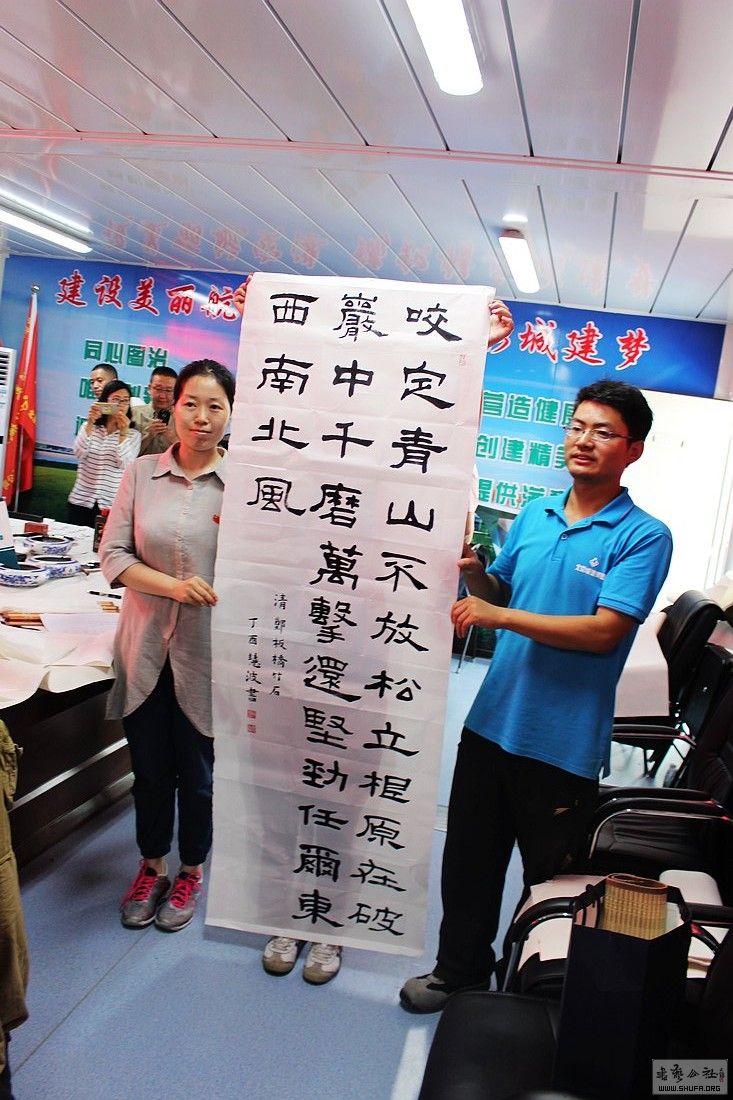 建设美丽航
城建梦
同心图治
营造健
创建精
提供
咬定青山不放松立根原在破
巖中千磨萬擊還堅勁任爾東
西南北風
清 鄭板橋竹石
丁酉慧波書
書藝公社
WWW.SHUFA.ORG